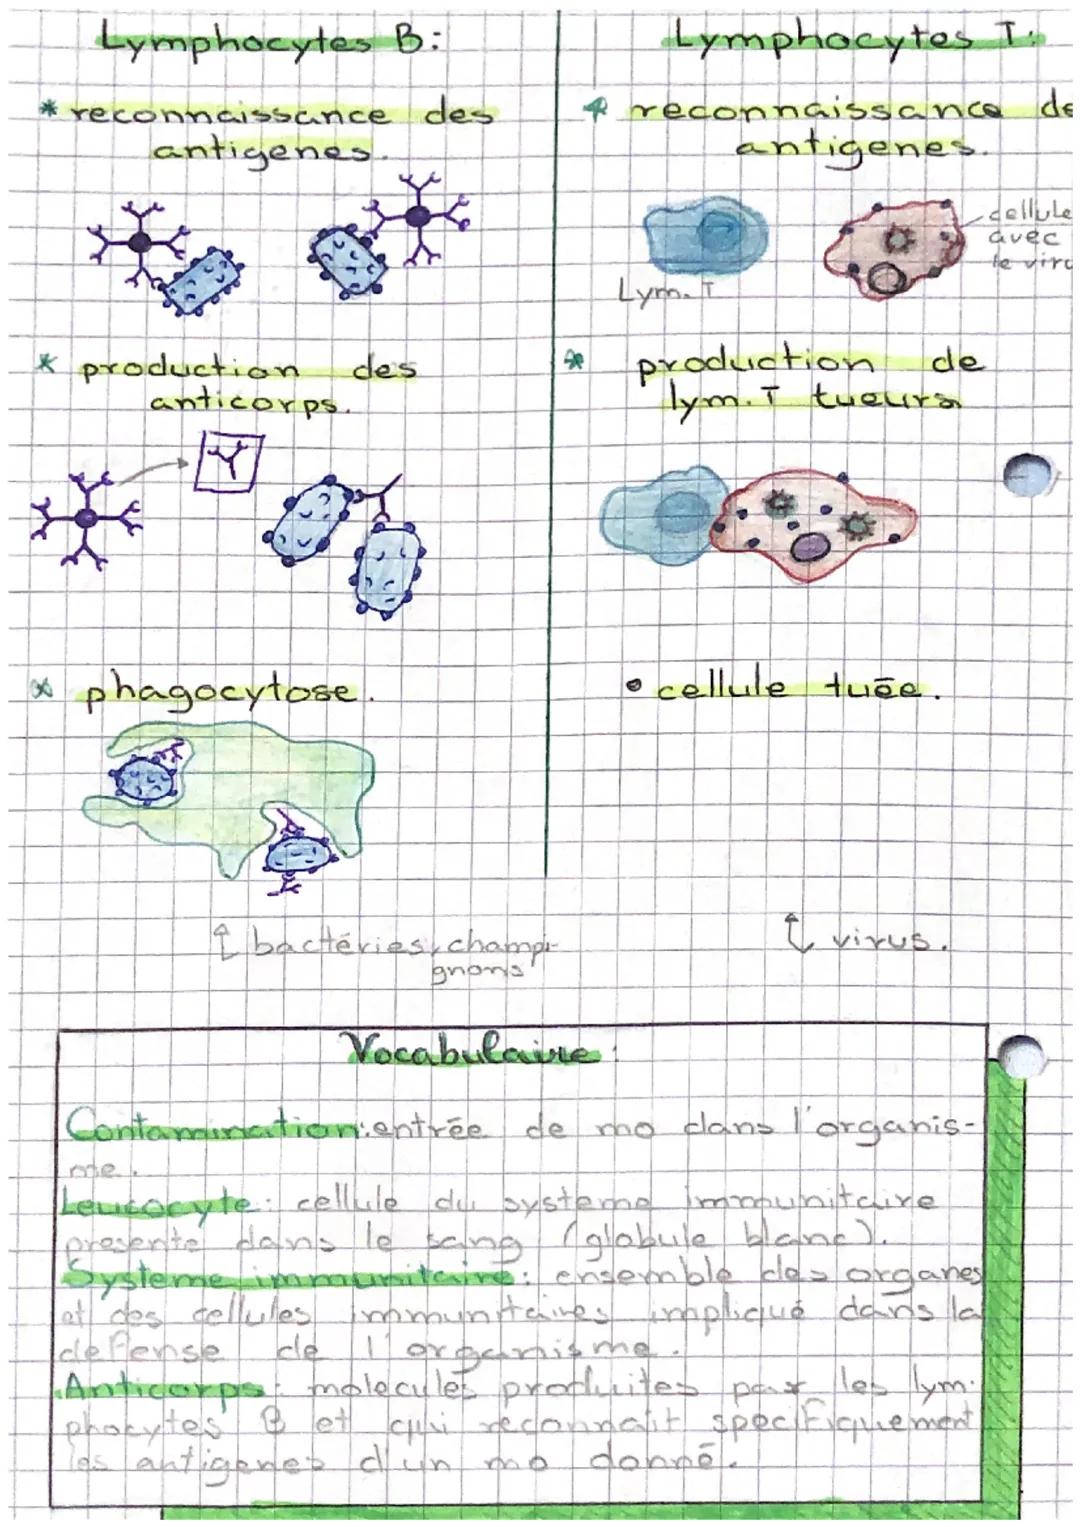 Lymphocytes B:
* reconnaissance des
antigenes.
* production des
anticorps.
* phagocytose.
bactéries, champi-
gnons
Lymphocytes T:
* reconnaissance de
antigenes.
cellule
avec
le viru
Lym. T
* production de
lym. T tueurs
• cellule tuée.
virus.
Vocabulaire:
Contamination: entrée de mo dans l'organis-
me.
Leucocyte: cellule du systeme immunitaire
presente dans le sang (globule blanc).
Systeme immunitaire: ensemble des organes
et des cellules immunitaires impliqué dans la
defense de l'organisme.
Anticorps: molecules produites par les lym-
phocytes B et qui reconnait specifiquement
les antigenes d'un mo donné.